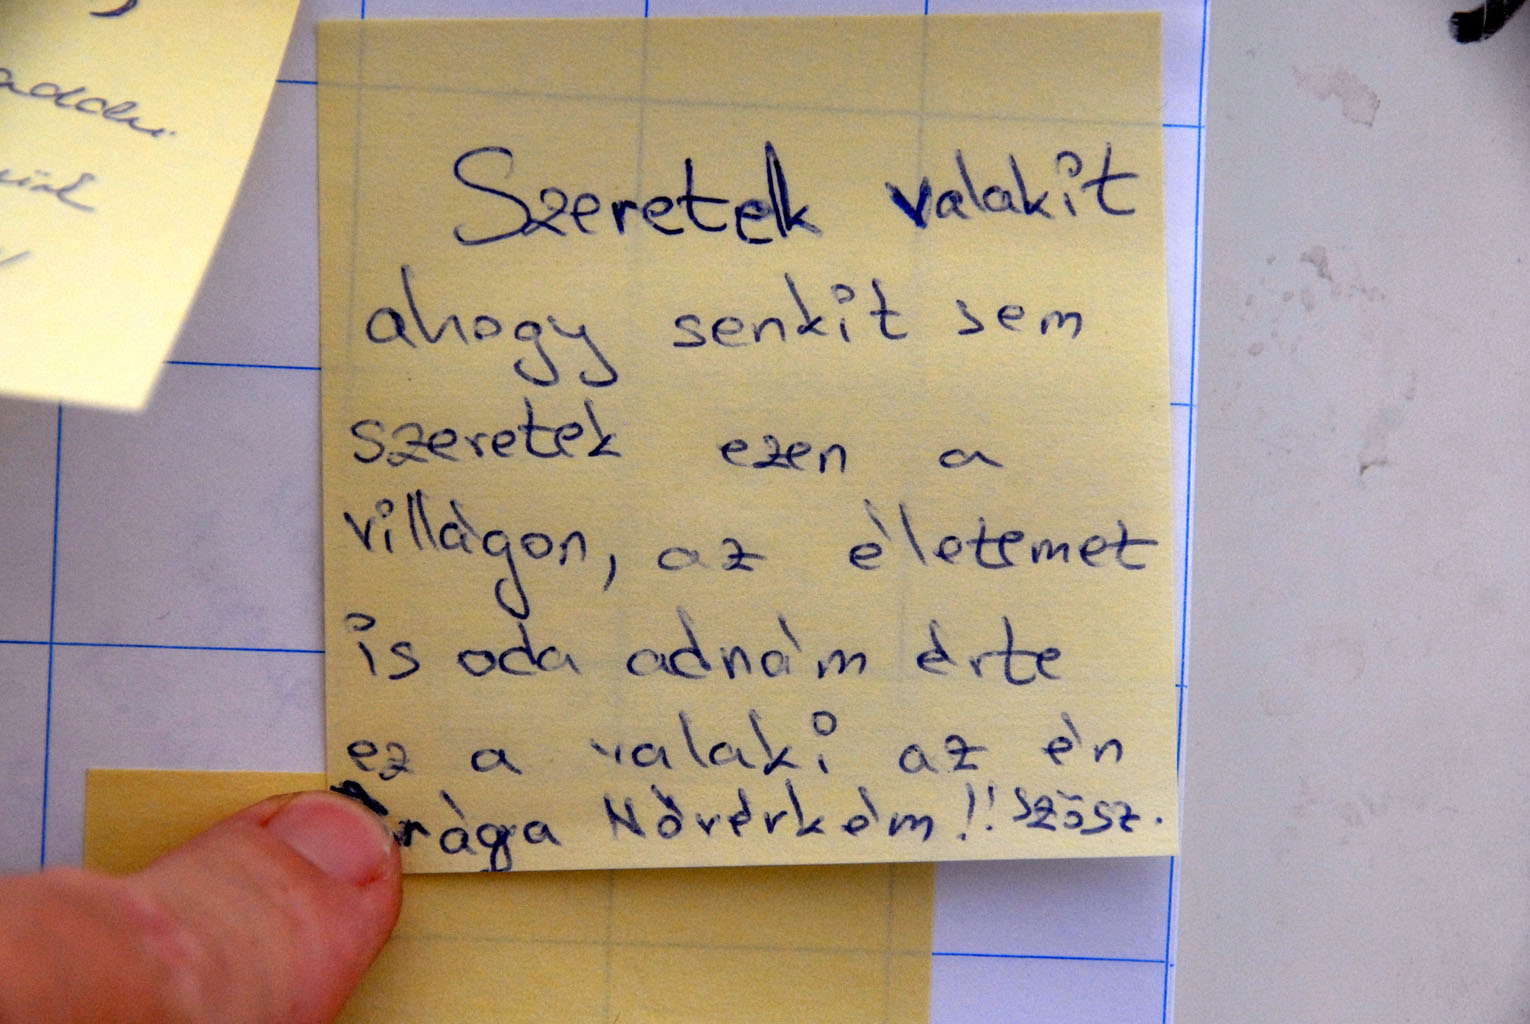 Szeretek valakit
ahogy senkit sem
szeretek ezen a
villàgon, az èletemet
is oda adnàm èrte
ez a valaki az èn
Dràga Nòvèrkèm!! szösz.